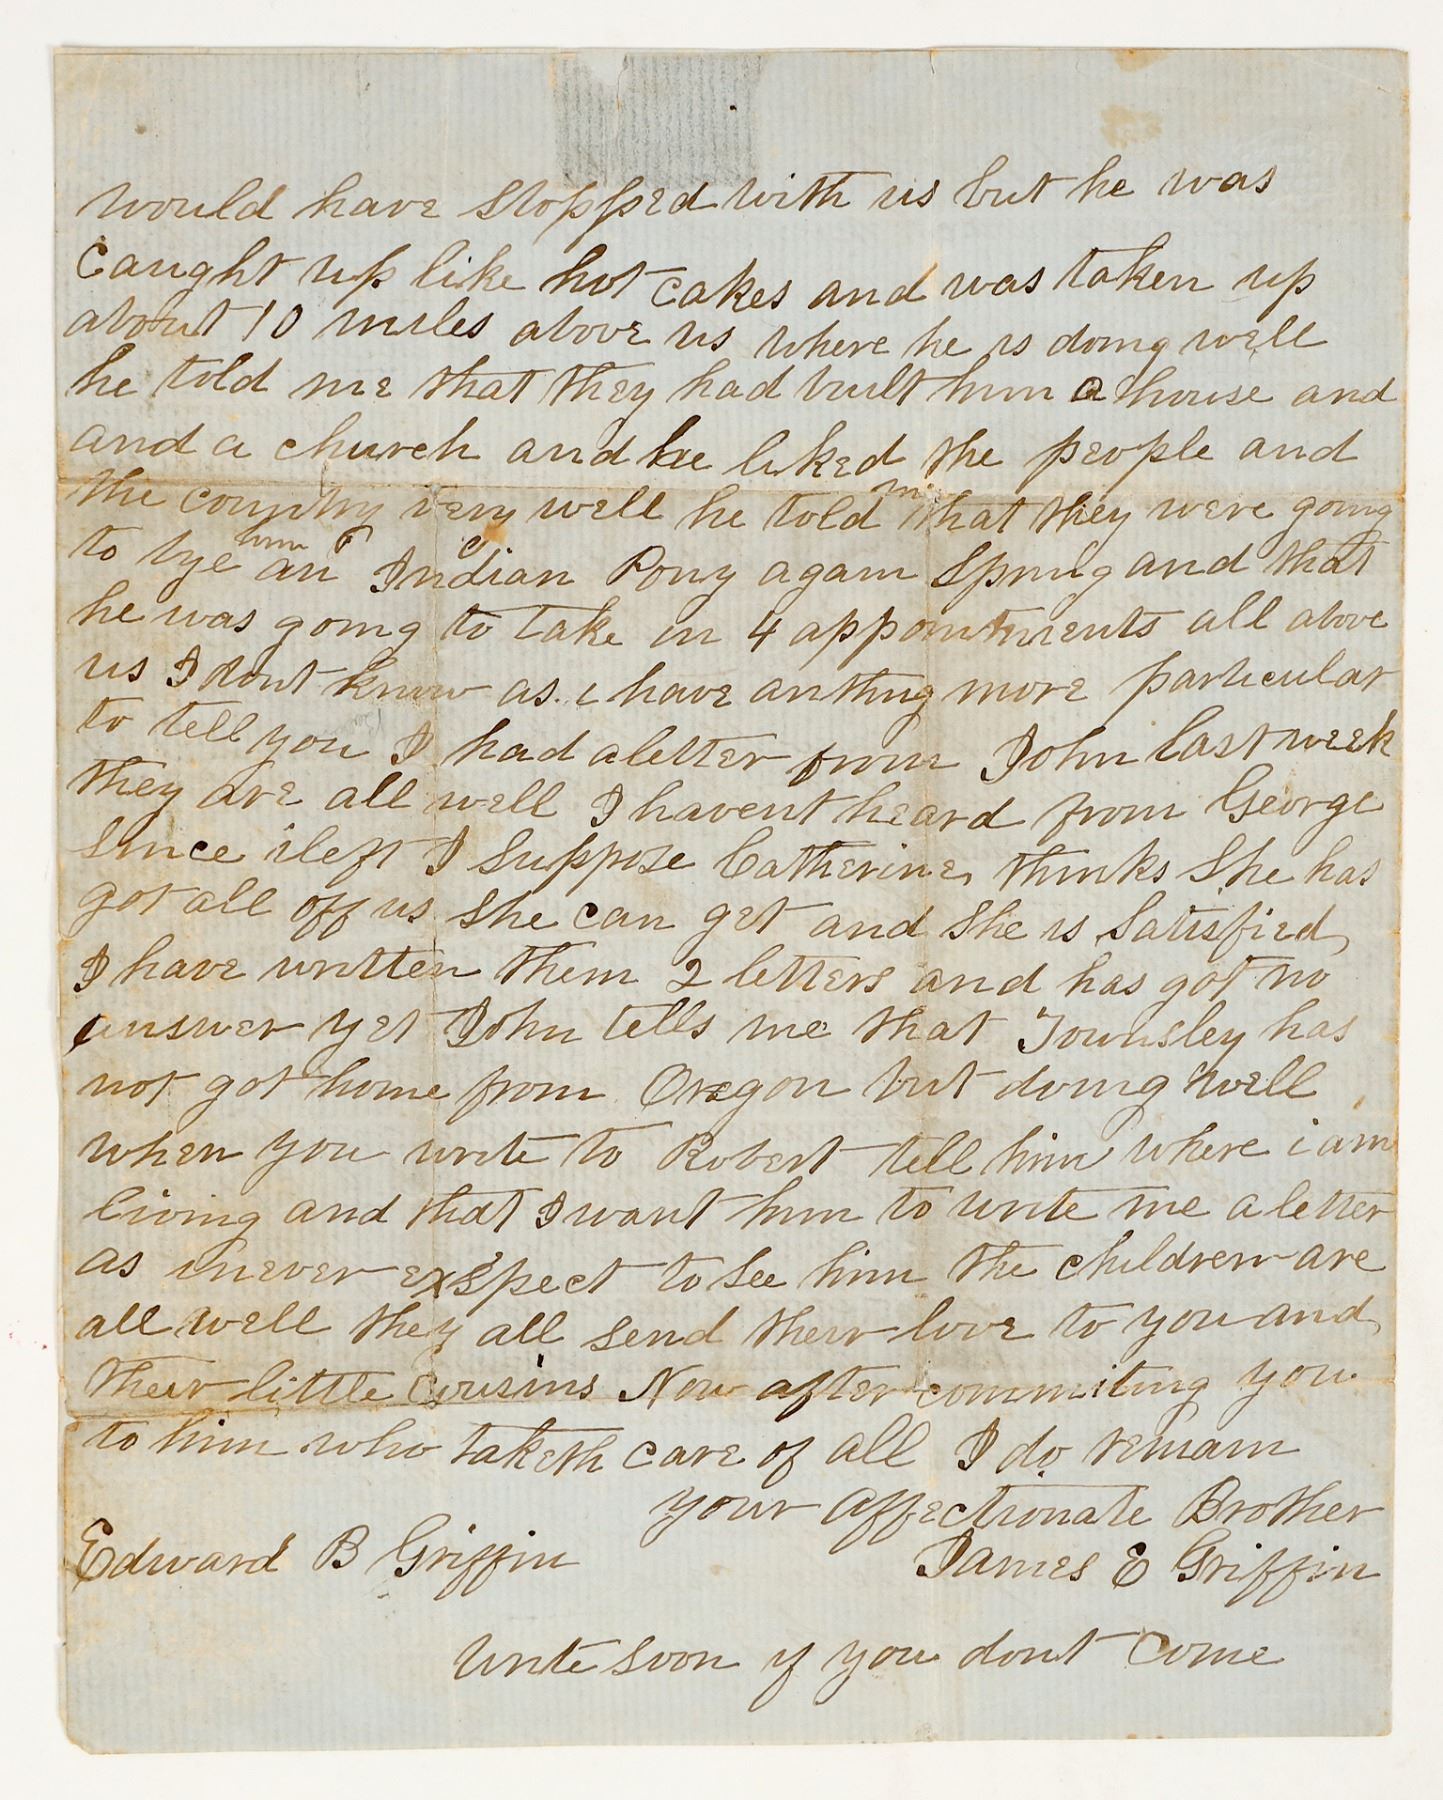 would have stopped with us but he was
caught up like hot cakes and was taken up
about 10 miles above us where he is doing well
he told me that they had built him a house and
and a church and he liked the people and
the country very well he told m that they were going
to bye him an Indian Pony again Spring and that
he was going to take in 4 appointments all above
us I dont know as i have anthing more particular
to tell you I had a letter from John last week
they are all well I havent heard from George
Since i left I Suppose Catherine thinks She has
got all off us She can get and She is Satisfied
I have written them 2 letters and has got no
answer yet John tells me that Townsley has
not got home from Oregon but doing well
when you write to Robert tell him where i am
living and that I want him to write me a letter
as i never exspect to See him the children are
all well they all send their love to you and
their little Cousins Now after commiting you
to him who taketh care of all I do remain
your affectionate Brother
Edward B Griffin James E Griffin
write soon if you dont come